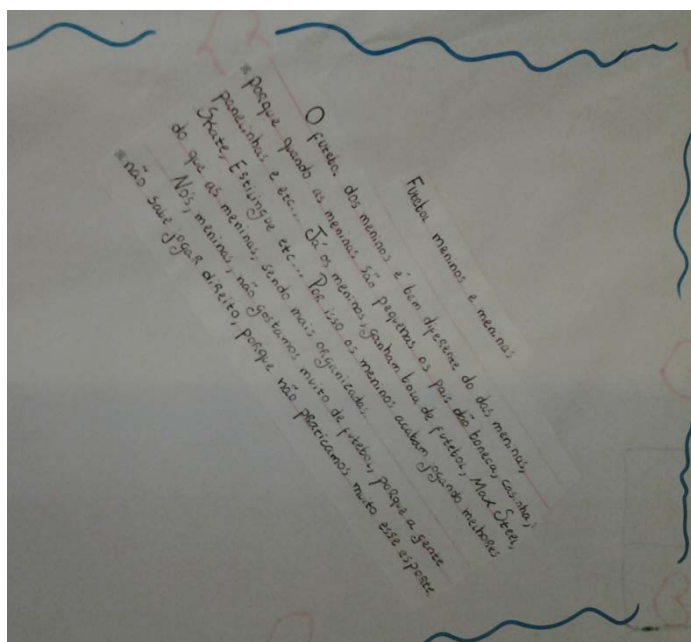 Futebol meninos e meninas
O futebol dos meninos é bem diferente do das meninas,
porque quando as meninas são pequenas os pais dão boneca, casinha,
panelinhas e etc... Já os meninos, ganham bola de futebol, Max Steel,
Skate, Estilingue etc... Por isso os meninos acabam jogando melhores
do que as meninas, sendo mais organizados.
Nós, meninas, não gostamos muito de futebol, porque a gente
não sabe jogar direito, porque não praticamos muito esse esporte